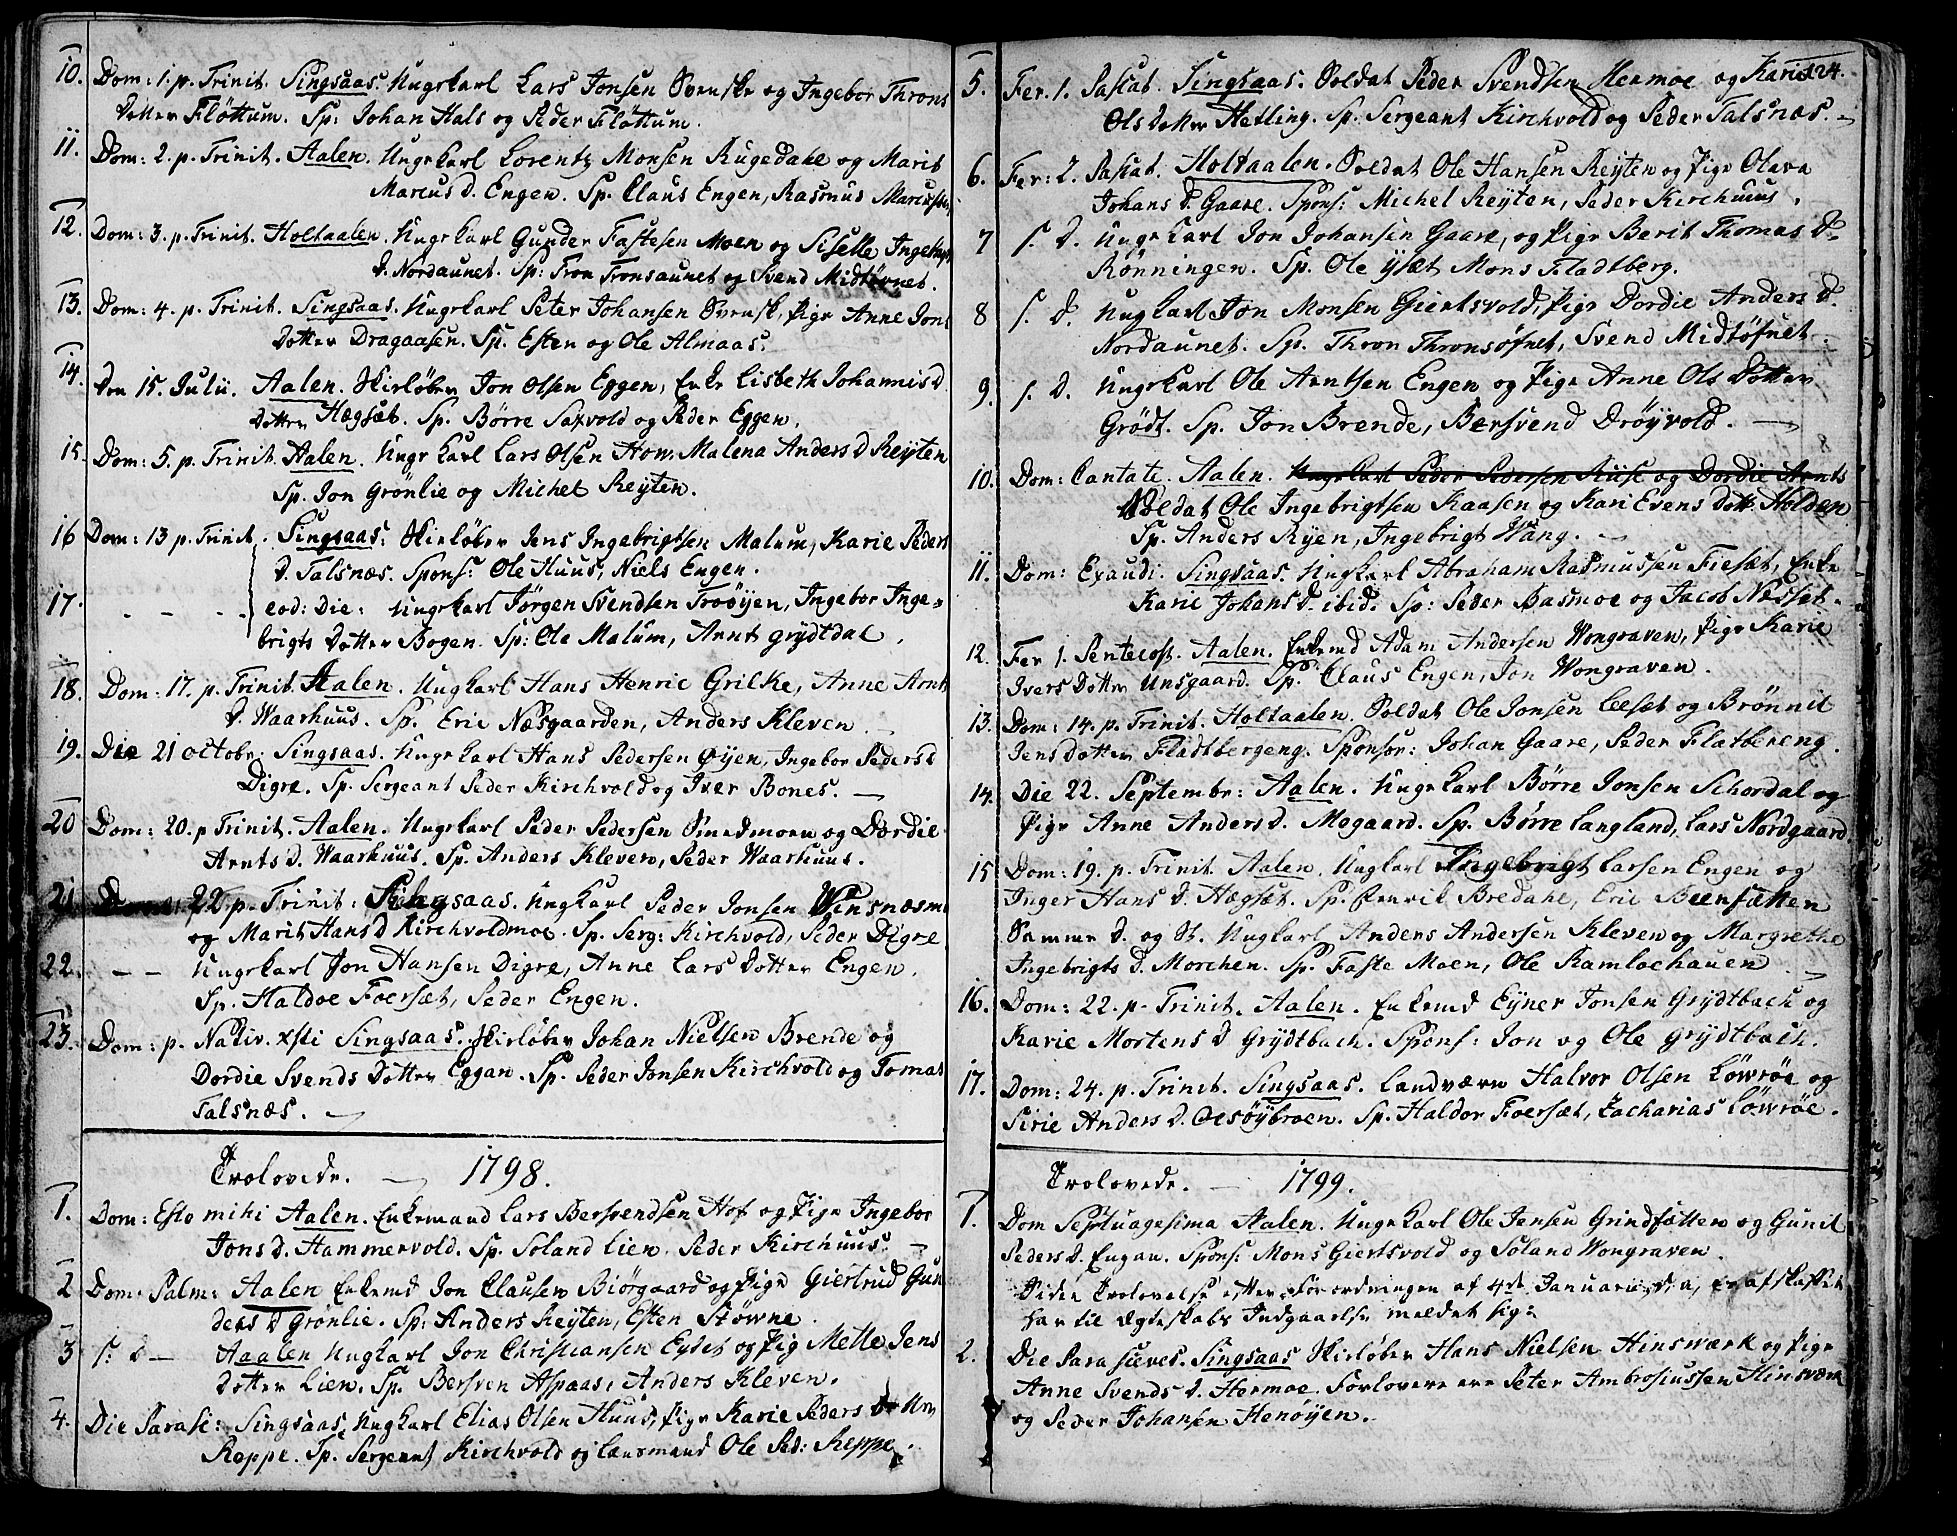 10. Dom: 1. p. Trinit. Singsaas. Ungekarl Lars Jonsen Svenske og Ingebor Throns
Dotter Fløttum. Sp: Johan Hals og Peder Fløttum.
11. Dom: 2. p. Trinit. Aalen. Ungekarl Lorentz Monsen Rugedahl og Marit
Marcus d. Engen. Sp. Claus Engen, Rasmus Marcusen
12. Dom: 3. p. Trinit. Holtaalen. Ungekarl Gunder Fastesen Moen og Siselle Ingebrigts
d. Nordaunet. Sp: Tron Tronsaunet og Svend Midtøvnet.
13. Dom: 4. p. Trinit. Singsaas. Ungekarl Peter Johansen Svensk, Pige Anne Jons
Dotter Dragaasen. Sp. Esten og Ole Almaas.
14. Den 15. Julii. Aalen. Skiløber Jon Olsen Eggen, Enke Lisbeth Johannis d.
Dotter Hægset. Sp. Børre Saxvold og Peder Eggen.
15. Dom: 5. p. Trinit. Aalen. Ungekarl Lars Olsen Hov. Malena Anders d Reyten
Sp. Jon Grønlie og Michel Reyten.
16 Dom: 13 p. Trinit. Singsaas: Skiløber Jens Ingebrigtsen Malum, Karie Peders
d. Talsnæs. Spons: Ole Huus, Niels Engen.
17. - - - eod: Die: Ungekarl Jørgen Svendsen Troøyen, Ingebor Inge-
brigts Dotter Bogen. Sp: Ole Malum, Arnt grydtdal.
18. Dom: 17. p. Trinit. Aalen. Ungkarl Hans Henric Grilke, Anne Arnts
d. Waarhuus. Sp. Eric Næsgaarden, Anders Kleven
19. Die 21 octobr: Singsaas. Ungekarl Hans Pedersen Øyen, Ingebor Peders d
Digre. Sp. Sergeant Peder Kirchvold og Iver Bones. —
20 Dom: 20. p Trinit. Aalen. Ungekarl Peder Pedersen Smedmoen og Dordie
Arnts d. Waarhuus. Sp. Anders Kleven, Peder Waarhuus.
21 Dom: 22 p. Trinit: Singsaas. Ungkarl Peder Jonsen Winsnæsm
og Marit Hans d Kirchvoldmoe. Sp. Serg: Kirchvold, Peder Digre
22. — — Ungekarl Jon Hansen Digre, Anne Lars Dotter Engen.
Sp. Haldoe Foersæt, Peder Engen.
23. Dom: p. Nativ. xsti Singsaas. Skiløber Johan Nielsen Brende og
Dordie Svends Dotter Eggan. Sp. Peder Jonsen Kirchvold og Tomas
Talsnæs. —
Trolovede. — 1798.
1. Dom: Esto mihi Aalen. Enkemand Lars Bersvendsen Hof og Pige Ingebor
Jons d. Hammervold. Sp. Poland Lien. Peder Kirchuus. —
2 Dom. Palm: Aalen Enkemd Jon Clausen Biørgaard og Pige Giertrud Gun
ders d Grønlie. Sp: Anders Reyten, Esten Støwne.
3 S. d — Aaalen Ungkarl Jon Christiansen Eydet og Pig Mette Jens
Dotter Lien. Sp. Bersven Aspaas, Anders Kleven.
4. Die Parasc: Singsaas, Ungkarl Elias Olsen Huus, Pige Karie Peders
Reppe. Sp. Sergeant Kirchvold og Lænsmand Ole Ped: Reppe.
124.
5. Fer. 1. Pascat. Singsaas. Soldat Peder Svendsen Hermoe og Karie
Ols Dotter Hetling. Sp. Sergeant Kirchvold og Peder Talsnæs. —
6. Fer: 2. Pascat. Holtaalen. Soldat Ole Hansen Reyten og Pige Olava
Johans d. Gaare. Spons: Michel Reyten, Peder Kirchuus.
7 S. D. Ungekarl Jon Johansen Gaare, og Pige Berit Thomas d.
Rønningen. Sp. Ole Ysæt Mons Fladtberg.
8 S. D. Ungkarl Jon Monsen Giertsvold, Pige Dordie Anders d.
Nordaunet. Sp. Thron Thronsøfnet, Svend Midtøfnet.
9. S. D. Ungekarl Ole Arntsen Engen og Pige Anne Ols Dotter
Grødt. Sp. Jon Brende, Bersvend Drøyvold. —
10. Dom: Cantate. Aalen. Ungekarl Peder Pedersen Riise og Dordie Arnts
Soldat Ole Ingebrigtsen Kaasen og Kari Evens Dott. Holden
Sp. Anders Ryen, Ingebrigt Wang. —
11. Dom: Exaudi. Singsaas. Ungkarl Abraham Rasmussen Fiesæt, Enke
Karie Johans d. ibid. Sp: Peder Basmoe og Jacob Næsset.
12. Fer 1. Pentecost. Aalen. Enkemd Adam Andersen Wongraven, Pige Karie
Ivers Dotter Unsgaard. Sp. Claus Engen, Jon Wongraven.
13. Dom: 14. p. Trinit. Holtaalen. Soldat Ole Jonsen Leeset og Brønnil
Jens Dotter Fladtbergeng. Sponsor: Johan Gaare, Peder Flatbereng.
14. Die 22. Septembr: Aalen. Ungekarl Børre Jonsen Schordal og
Pige Anne Anders d. Mogaard. Sp. Børre Langland, Lars Nordgaard.
15 Dom: 19. p. Trinit. Aalen. Ungkarl Ingebrigt Larsen Engen og
Inger Hans d. Hægset. Sp. Henrik Bredahl, Eric Beensætten
Samme d. og St. Ungkarl Anders Andersen Kleven og Margrethe
Ingebrigts d. Morchen. Sp. Faste Moen, Ole Ramloehauen —
16. Dom: 22. p. Trinit. Aalen. Enkemd Eyner Jonsen Grydtbach og
Karie Mortens d Grydtbach. Spons: Jon og Ole grydtbach.
17. Dom: 24. p. Trinit. Singsaas. Landværn Halvor Olsen Løwrøe og
Sirie Anders d. Oesøybroen. Sp. Haldor Foersæt, Zacharias Løwrøe.
Trolovede. — 1799.
1. Dom Septuagesima Aalen. Ungekarl Ole Jensen Grindsætten og Gunil
Peders d. Engan. Spons: Mons Giertsvold og Poland Wongraven.
Siden Trolovelse efter Forordningen af 4de Januarii, d. a, er afskaffet
har til Egteskabs Indgaaelse meldet sig:
2. Die Parasceves. Singsaas Skiløber Hans Nielsen Hinsværk og Pige
Anne Svends d. Hermoe. Forlovere ere Peter Ambrosiussen Hinsværk
og Peder Johansen Henøyen.